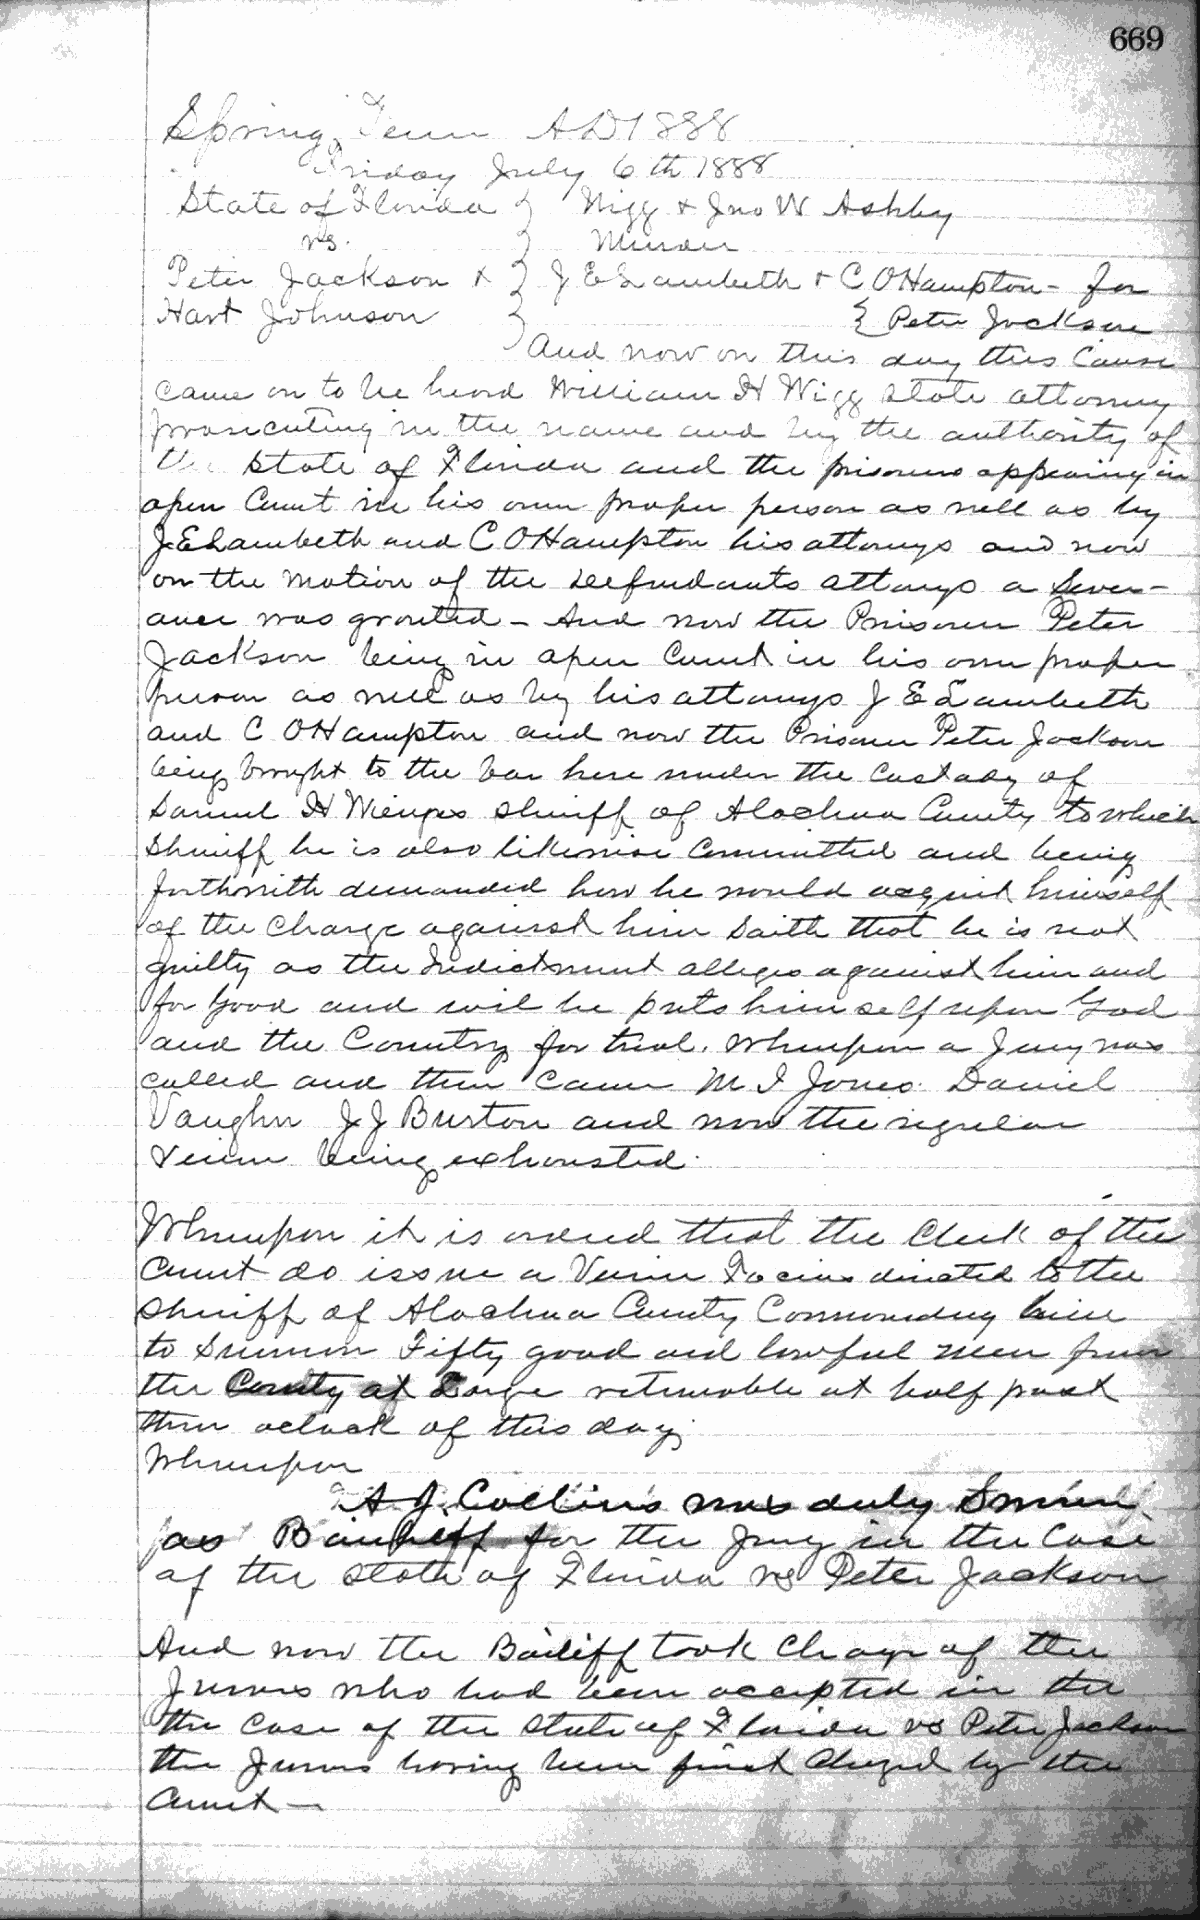 669
Spring Term AD 1888
Friday July 6th 1888
State of Florida } Wigg & Jno W Ashby
vs. } Murder
Peter Jackson & } J E Lambeth & C O Hampton - for
Hart Johnson } { Peter Jackson
And now on this day this Cause
came on to be heard William H Wigg State attorney
prosecuting in the name and by the authority of
the State of Florida and the prisoners appearing in
open Court in his own proper person as well as by
J E Lambeth and C O Hampton his attorneys and now
on the motion of the defendants attorneys a Sever-
ance was granted - And now the Prisoner Peter
Jackson being in open Court in his own proper
person as well as by his attorneys J E Lambeth
and C O Hampton and now the Prisoner Peter Jackson
being brought to the bar here under the Custody of
Samuel H Wienges Sheriff of Alachua County to which
Sheriff he is also likewise Committed and being
forthwith demanded how he would acquit himself
of the Charge against him Saith that he is not
guilty as the Indictment alleges against him and
for good and evil he puts himself upon God
and the Country for trial. Whereupon a Jury was
called and then came M I Jones Daniel
Vaughn J J Burton and now the regular
Venire being exhausted.
Whereupon it is ordered that the Clerk of the
Court do issue a Venire Facias directed to the
Sheriff of Alachua County Commanding him
to Summon Fifty good and lawful men from
the County at Large returnable at half past
three oclock of this day.
Whereupon
A J. Collins was duly Sworn
as Bailiff for the Jury in the Case
of the State of Florida vs Peter Jackson
And now the Bailiff took Charge of the
Jurors who had been accepted in the
the case of the State of Florida vs Peter Jackson
the Jurors having been first Charged by the
Court -